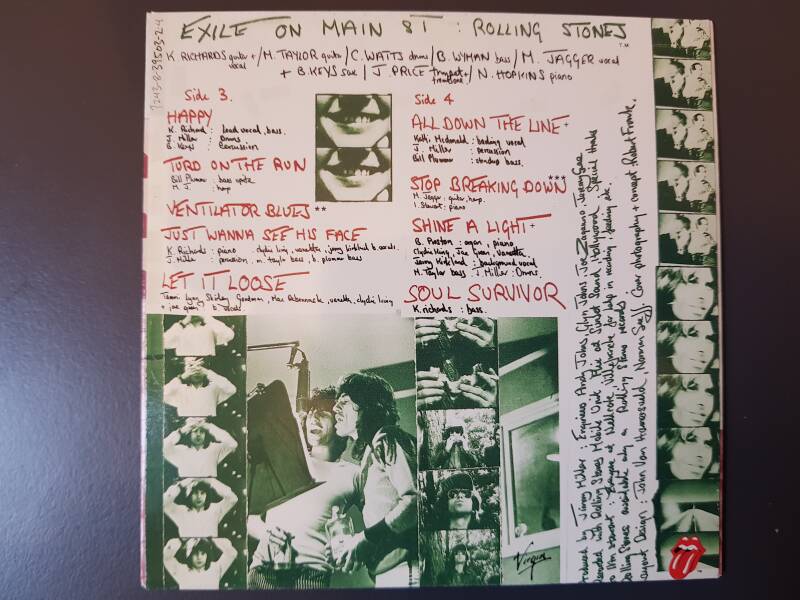 EXILE ON MAIN ST : ROLLING STONES
TM
K RICHARDS guitar + / M. TAYLOR guitar / C. WATTS drums / B. WYMAN bass / M. JAGGER vocal
vocal
+ B. KEYS sax / J. PRICE trumpet + / N. HOPKINS piano
trombone
7243-8-39503-2-4
Side 3.
HAPPY
K. Richard : Lead vocal, bass.
J. Miller : Drums
B. Keys : Percussion
TURD ON THE RUN
Bill Plummer : bass
M. J. : harp
VENTILATOR BLUES **
JUST WANNA SEE HIS FACE
K. Richards : piano clydie king, venetta, jerry kirkland b. vocals.
J. Miller : percussion, m. taylor bass, b. plummer bass
LET IT LOOSE
Tami Lynn, Shirley Goodman, Mac Rebennack, venetta, clydie king
+ joe green b. vocals.
Side 4
ALL DOWN THE LINE +
Kathi Mcdonald : backing vocal
J. Miller : percussion
Bill Plummer : standup bass.
STOP BREAKING DOWN ***
M. Jagger : guitar, harp.
I. Stewart : piano
SHINE A LIGHT +
B. Preston : organ, piano
Clydie King, Joe Green, Venetta,
Jerry Kirkland : background vocal
M. Taylor bass J. Miller : Drums.
SOUL SURVIVOR
K. richards : bass.
Produced by Jimmy Miller : Engineers Andy Johns, Glyn Johns, Joe Zagarino, Jeremy Gee
Recorded with Rolling Stones Mobile Unit, Mixed at Sunset Sound, Hollywood, Special thanks
to Ian stewart : Everyone at Nellcote, Villefranche for help in recording, feeding etc.
Rolling Stones available only on Rolling Stones records
Layout Design : John Van Hamersveld, Norman Seeff. Cover photography + concept Robert Frank.
Virgin